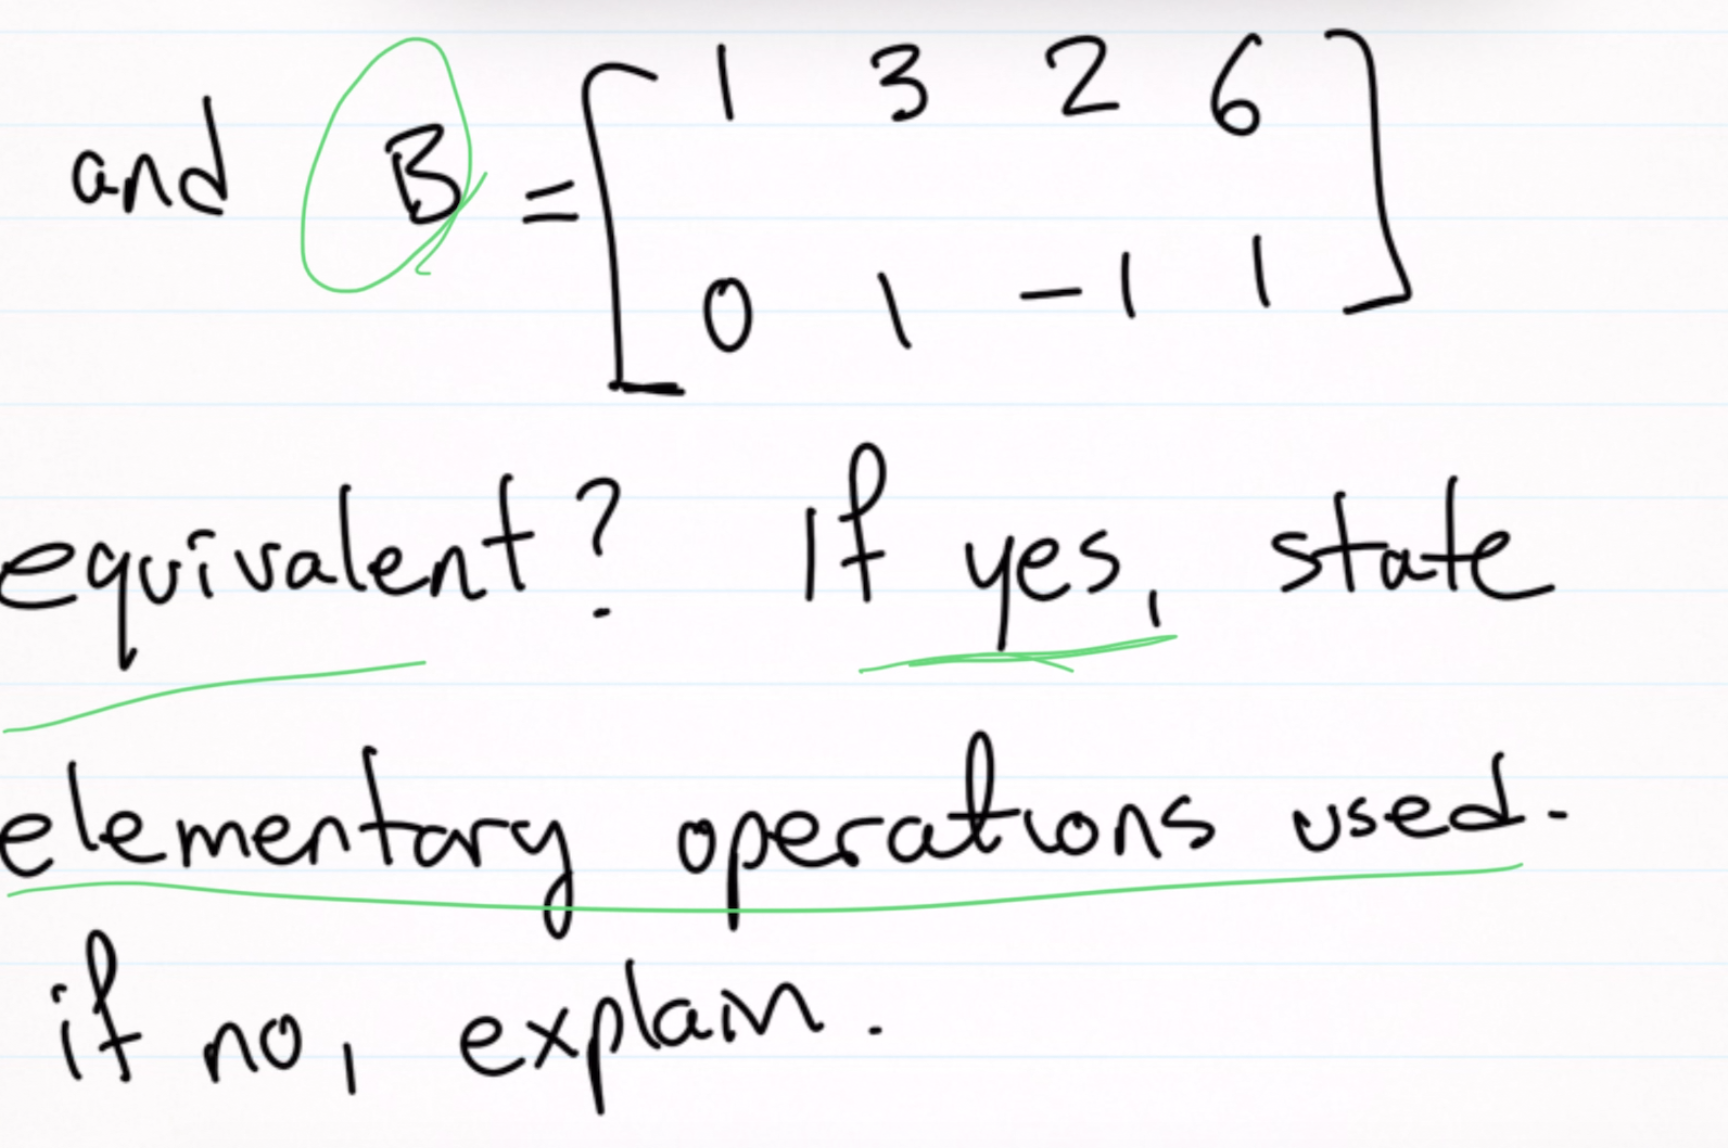 and B = [ 1 3 2 6
0 1 -1 1 ]
equivalent? If yes, state
elementary operations used.
if no, explain.